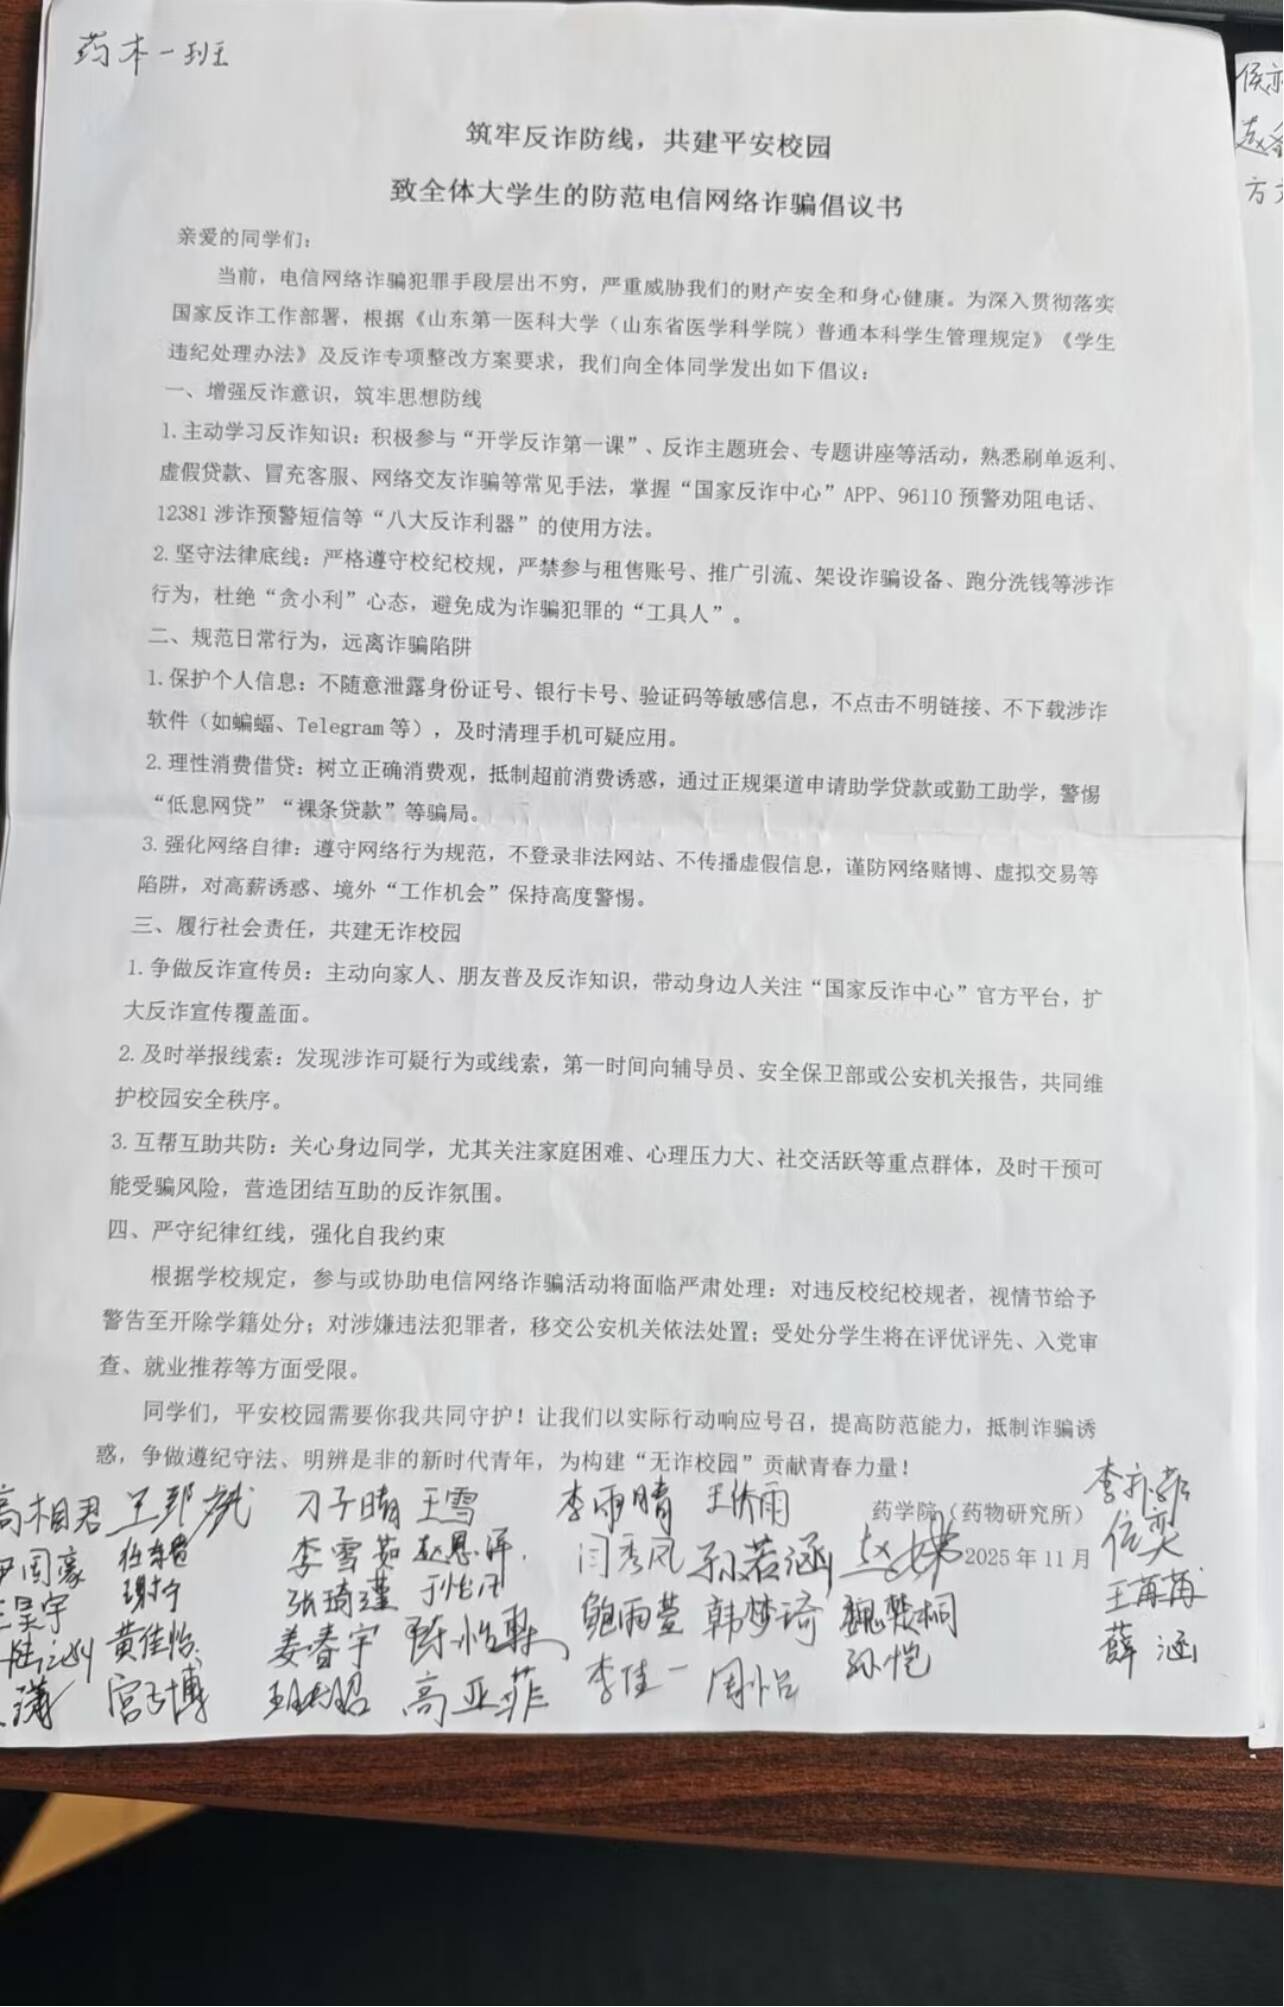 药本一班
筑牢反诈防线，共建平安校园
致全体大学生的防范电信网络诈骗倡议书
亲爱的同学们：
当前，电信网络诈骗犯罪手段层出不穷，严重威胁我们的财产安全和身心健康。为深入贯彻落实
国家反诈工作部署，根据《山东第一医科大学（山东省医学科学院）普通本科学生管理规定》《学生
违纪处理办法》及反诈专项整改方案要求，我们向全体同学发出如下倡议：
一、增强反诈意识，筑牢思想防线
1.主动学习反诈知识：积极参与“开学反诈第一课”、反诈主题班会、专题讲座等活动，熟悉刷单返利、
虚假贷款、冒充客服、网络交友诈骗等常见手法，掌握“国家反诈中心”APP、96110预警劝阻电话、
12381涉诈预警短信等“八大反诈利器”的使用方法。
2.坚守法律底线：严格遵守校纪校规，严禁参与租售账号、推广引流、架设诈骗设备、跑分洗钱等涉诈
行为，杜绝“贪小利”心态，避免成为诈骗犯罪的“工具人”。
二、规范日常行为，远离诈骗陷阱
1.保护个人信息：不随意泄露身份证号、银行卡号、验证码等敏感信息，不点击不明链接、不下载涉诈
软件（如蝙蝠、Telegram等），及时清理手机可疑应用。
2.理性消费借贷：树立正确消费观，抵制超前消费诱惑，通过正规渠道申请助学贷款或勤工助学，警惕
“低息网贷”“裸条贷款”等骗局。
3.强化网络自律：遵守网络行为规范，不登录非法网站、不传播虚假信息，谨防网络赌博、虚拟交易等
陷阱，对高薪诱惑、境外“工作机会”保持高度警惕。
三、履行社会责任，共建无诈校园
1.争做反诈宣传员：主动向家人、朋友普及反诈知识，带动身边人关注“国家反诈中心”官方平台，扩
大反诈宣传覆盖面。
2.及时举报线索：发现涉诈可疑行为或线索，第一时间向辅导员、安全保卫部或公安机关报告，共同维
护校园安全秩序。
3.互帮互助共防：关心身边同学，尤其关注家庭困难、心理压力大、社交活跃等重点群体，及时干预可
能受骗风险，营造团结互助的反诈氛围。
四、严守纪律红线，强化自我约束
根据学校规定，参与或协助电信网络诈骗活动将面临严肃处理：对违反校纪校规者，视情节给予
警告至开除学籍处分；对涉嫌违法犯罪者，移交公安机关依法处置；受处分学生将在评优评先、入党审
查、就业推荐等方面受限。
同学们，平安校园需要你我共同守护！让我们以实际行动响应号召，提高防范能力，抵制诈骗诱
惑，争做遵纪守法、明辨是非的新时代青年，为构建“无诈校园”贡献青春力量！
药学院（药物研究所）
2025年11月
高相君 刁子晴 王雪 李雨晴 王侨雨
尹国豪 李雪茹 闫秀凤 孙若涵 信奕
昊宇 谢宁 张琦瑾 鲍雨萱 韩梦琦 魏樊桐 王苒苒
黄佳怡 姜春宇 孙恺 薛涵
宫子博 高亚菲 李佳一 周怡